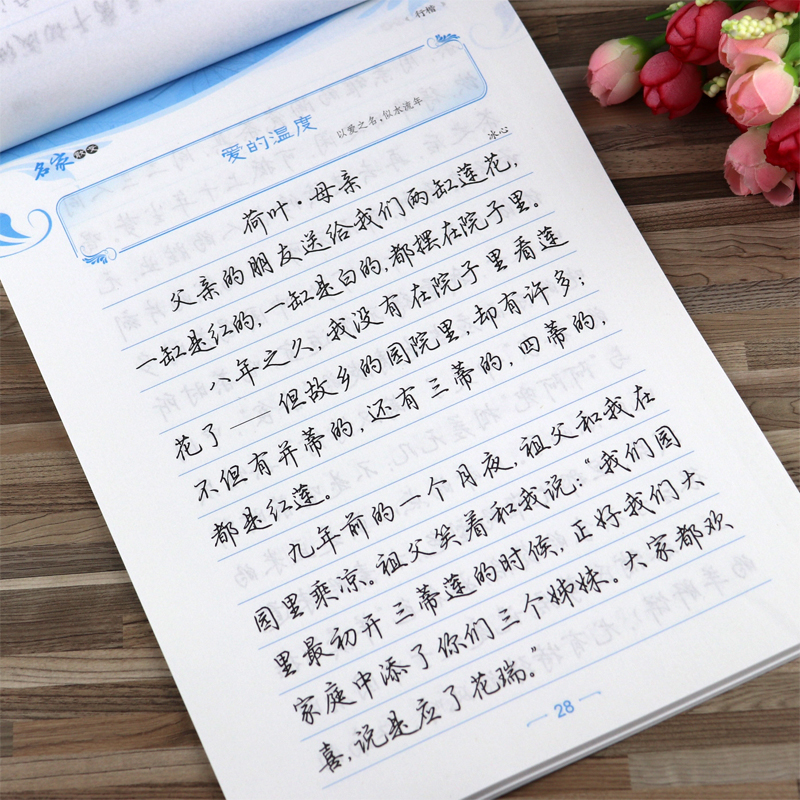 行楷
名家散文
爱的温度
以爱之名,似水流年
荷叶·母亲
冰心
父亲的朋友送给我们两缸莲花,
一缸是红的,一缸是白的,都摆在院子里。
八年之久,我没有在院子里看莲
花了——但故乡的园院里,却有许多;
不但有并蒂的,还有三蒂的,四蒂的,
都是红莲。
九年前的一个月夜,祖父和我在
园里乘凉。祖父笑着和我说:“我们园
里最初开三蒂莲的时候,正好我们大
家庭中添了你们三个姊妹。大家都欢
喜,说是应了花瑞。”
28